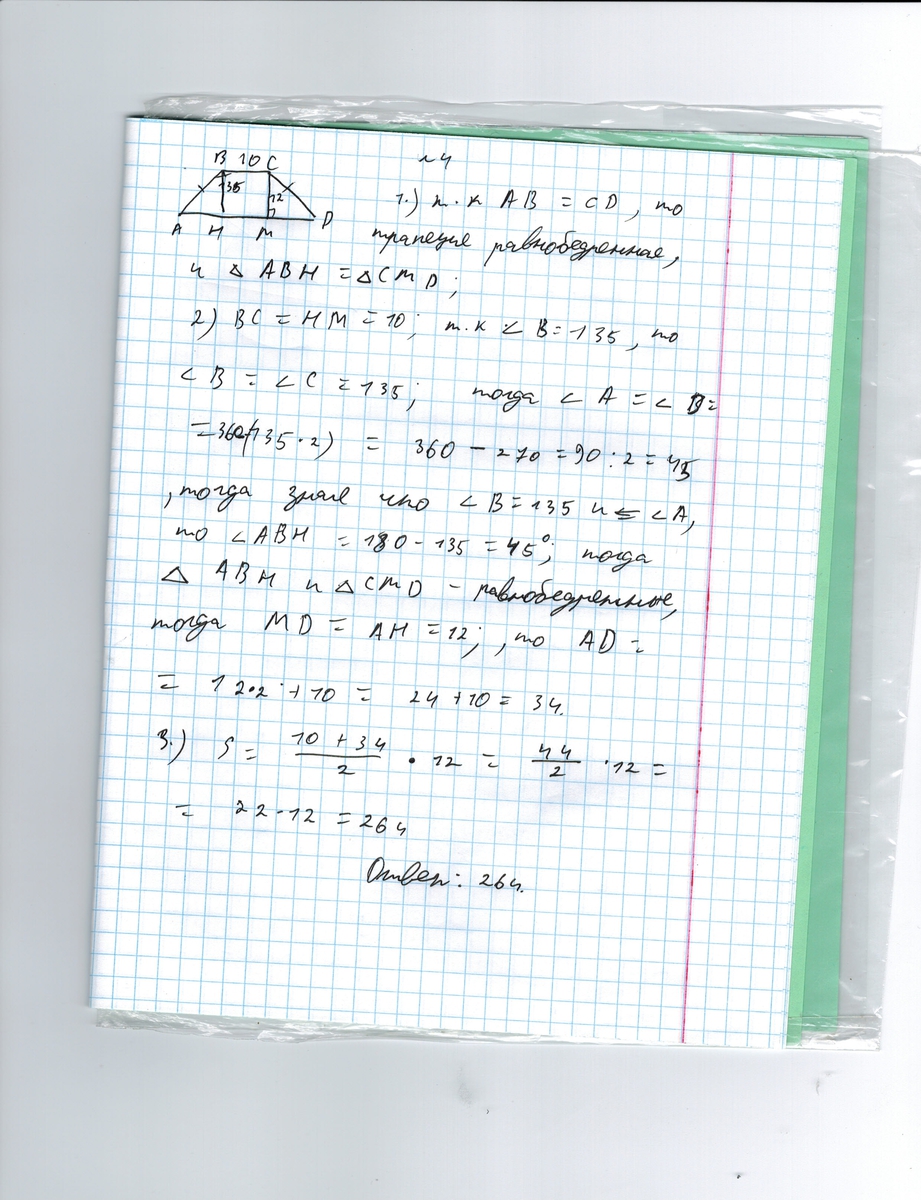 №4
B 10 C
135
12
A H M D
1.) т.к AB = CD, то
трапеция равнобедренная,
и △ ABH = △CMD;
2) BC = HM = 10; т.к ∠B = 135, то
∠B = ∠C = 135; тогда ∠A = ∠D =
= 360-(135·2) = 360 - 270 = 90 : 2 = 45
, тогда зная что ∠B = 135 и ∠A,
то ∠ABH = 180 - 135 = 45°; тогда
△ ABH и △CMD - равнобедренные,
тогда MD = AH = 12; , то AD =
= 12·2 + 10 = 24 + 10 = 34.
3.) S = (10 + 34)/2 · 12 = 44/2 · 12 =
= 22·12 = 264
Ответ: 264.